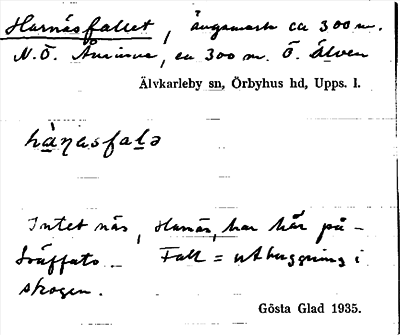 Harnäsfallet, ängsmark ca 300 m.
N.Ö. Åmimne, ca 300 m. Ö. Älven
Älvkarleby sn, Örbyhus hd, Upps. l.
hàṇasfalə
Intet näs, Harnäs, har här på-
träffats. Fall = utbuggning i
skogen.
Gösta Glad 1935.